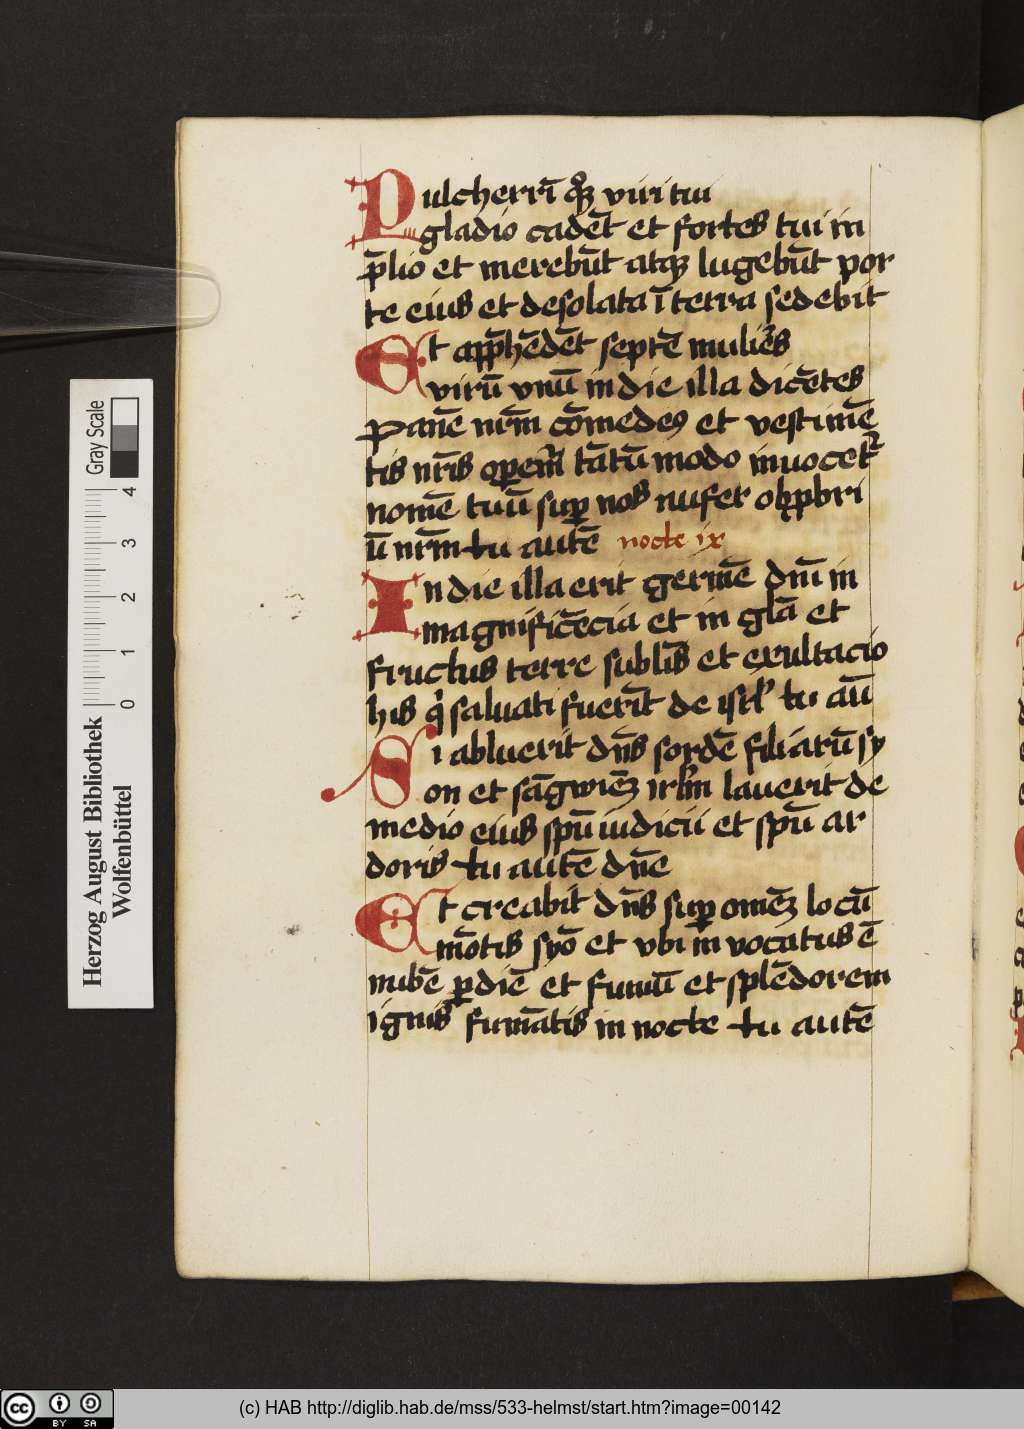 Pulcherrī qȝ viri tui
gladio cadēt et fortes tui in
p̄lio et merebūt atqȝ lugebūt por
te eius et desolata ī terra sedebit
Et app̄hēdēt septē mulieēs
virū vnū in die illa dicētes
panē nrm̄ cōmedeꝰ et vestimē
tis nrīs operem̄ tātū modo inuocet᷑
nomē tuū suꝑ nos aufer obꝓbri
ū nrm̄ tu autē nocte ix
In die illa erit germē dnī in
magnificēcia et in glā et
fructus terre sublīs et exultacio
his qͥ saluati fuerīt de isrl̓ tu aūt
Si abluerit dn̄s sordē filiarū sy
on et sāgwiēȝ irl̄m lauerit de
medio eius spū iudicii et spū ar
doris tu autē dn̄e
Et creabit dn̄s suꝑ omēȝ locū
mōtis syō et vbi in vocatus ē
nubē ꝑ diē et fumū et splēdorem
ignis fumātis in nocte tu autē
Gray Scale
4
3
2
1
0
Herzog August Bibliothek
Wolfenbüttel
cc BY SA
(c) HAB http://diglib.hab.de/mss/533-helmst/start.htm?image=00142